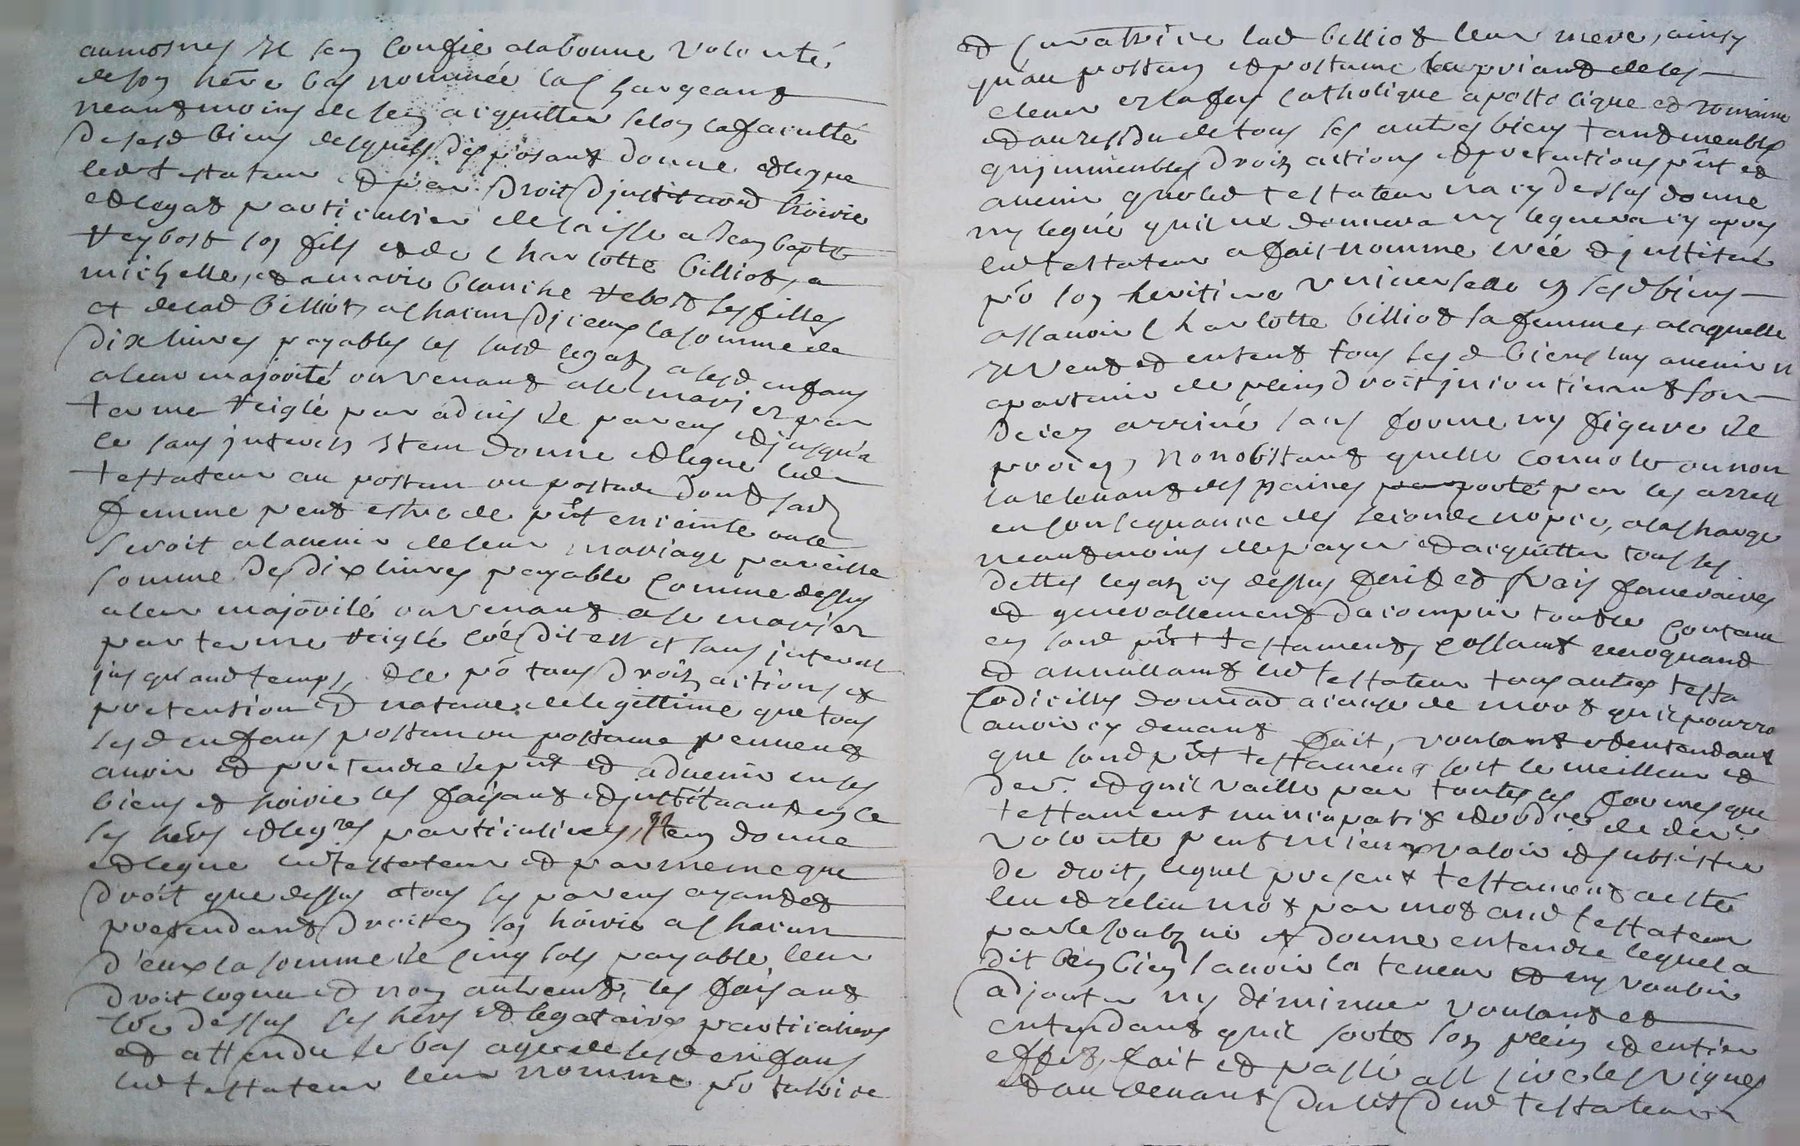 aumosnes Il sen confie a la bonne volonté
de son hére bas nommée la chargeant
neantmoins de sen acquitter selon la faculté
de sesd biens desquels disposant donne et legue
led testateur et par droit d'jnstitu͞on hoirie
et legat particulier delaisse a Jean bapte
son fils et de Charlotte billiot, a
michelle, et a marie blanche ses filles
et de lad billiot a chacun d'iceux la somme de
dix livres payables les susd legaz a sesd enfans
a leur majorité ou venant a se marier par
terme reiglé par advis de parens et jusqu'a
ce sans jnterests Item donne et legue led
testateur au postum ou postume dont sad
femme peut estre de pñt enceinte ou le
seroit a l'avenir de leur mariage pareille
somme de dix livres payable comme dessus
a leur majorité ou venant a se marier
par terme reiglé coe dit est et sans jnterest
jusqu'aud temps, et ce po tous droitz actions et
pretention et nature de legittime que tous
lesd enfans postum ou postume peuvent
avoir et pretendre de pnt et advenir en ses
biens et hoirie les faisant et jnstituant en ce
ses hérs et legres particuliers, Item donne
et legue led testateur et par mesme que
droit que dessus a tous ses parens ayant et
pretendant droit en son hoirie a chacun
d'eux la somme de cinq sols payable leur
droit cognu et non autrement, les faisant
coe dessus ses hérs et legataires particuliers
et attendu le bas age de sesd enfans
led testateur leur nomme po tutrice
et curatrice lad billiot leur mere, ainsy
qu'au postum et postume la priant de les
elever en la foy catholique apostolique et romaine
et au residu de tous ses autres biens tant meubles
qu'jmmeubles droitz actions et pretentions pñt et
avenir que led testateur na cy dessus donne
ny legué quil ne donnera ny leguera cy apres
led testateur a fait nomme créé et jnstitué
po son heritiere universelle en sesd biens
assavoir Charlotte billiot sa femme, a laquelle
Il veut et entent tous sesd biens luy avenir et
apartenir de plein droit jncontinent son
deces arrivé sans forme ny figure de
proces, nonobstant quelle convole ou non
la relevant des paines porté par les arrest
en consequance des seconde nopces, a la charge
neantmoins de payer et acquitter tous les
dettes legaz cy dessus fait et frais funeraires
et generallement d'acomplir tout le contenu
en sond pñt testament, cassant revoquand
et annullant led testateur tous autres testa
codicilles dona͞on a cause de mort qu'il pourro
avoir cy devant fait, voulant et entendant
que sond pñt testament soit le meilleur et
der. et quil vaille par toutes les formes que
testament nuncupatif et ordre de der.
volonte peut mieux valoir et subsister
de droit, lequel present testament a esté
leu et releu mot par mot aud testateur
par le soubz né et donne entendre lequel a
dit bien savoir la teneur et ny vouloir
adjouter ny diminuer voulant et
entendant quil sorte son plein et entier
effet, fait et passé les vignes
et au devant du lit dud testateur